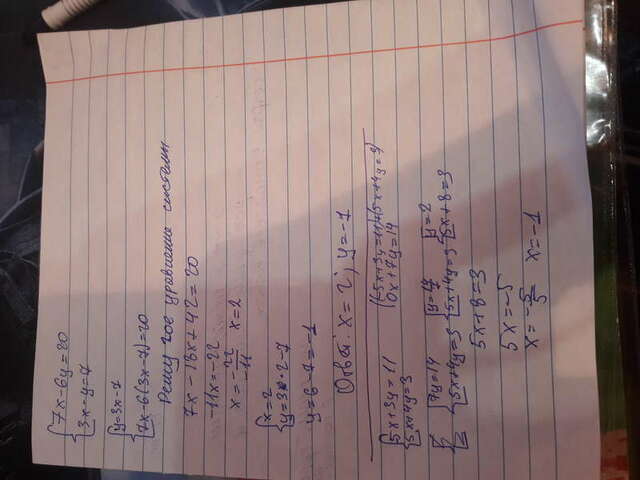 {7x-6y=20
{3x-y=7
{y=3x-7
{7x-6(3x-7)=20
Решу 2ое уравнение системы
7x-18x+42=20
-11x=-22
x=-22/-11 x=2
{x=2
{y=3·2-7
y=6-7=-1
Ответ: x=2; y=-1
{5x+4y=3
0x+7y=14
{7y=14
{5x+4y=3
{5x+4y=3
{y=2
{5x+8=3
5x+8=3
5x=-5
x=-5/5 x=-1